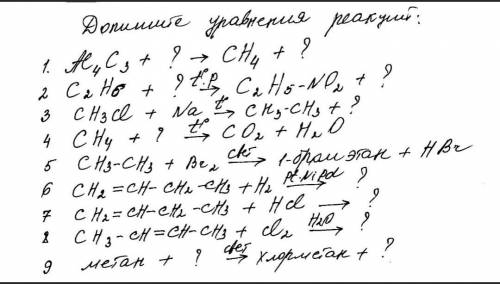 Допишите уравнения реакций:
1. Al4C3 + ? → CH4 + ?
2 C2H6 + ? t°,p → C2H5-NO2 + ?
3 CH3Cl + Na t° → CH3-CH3 + ?
4 CH4 + ? t° → CO2 + H2O
5 CH3-CH3 + Br2 свет → 1-бромэтан + HBr
6 CH2=CH-CH2-CH3 + H2 Pt,Ni,Pd → ?
7 CH2=CH-CH2-CH3 + HCl → ?
8 CH3-CH=CH-CH3 + Cl2 H2O → ?
9 метан + ? свет → хлорметан + ?